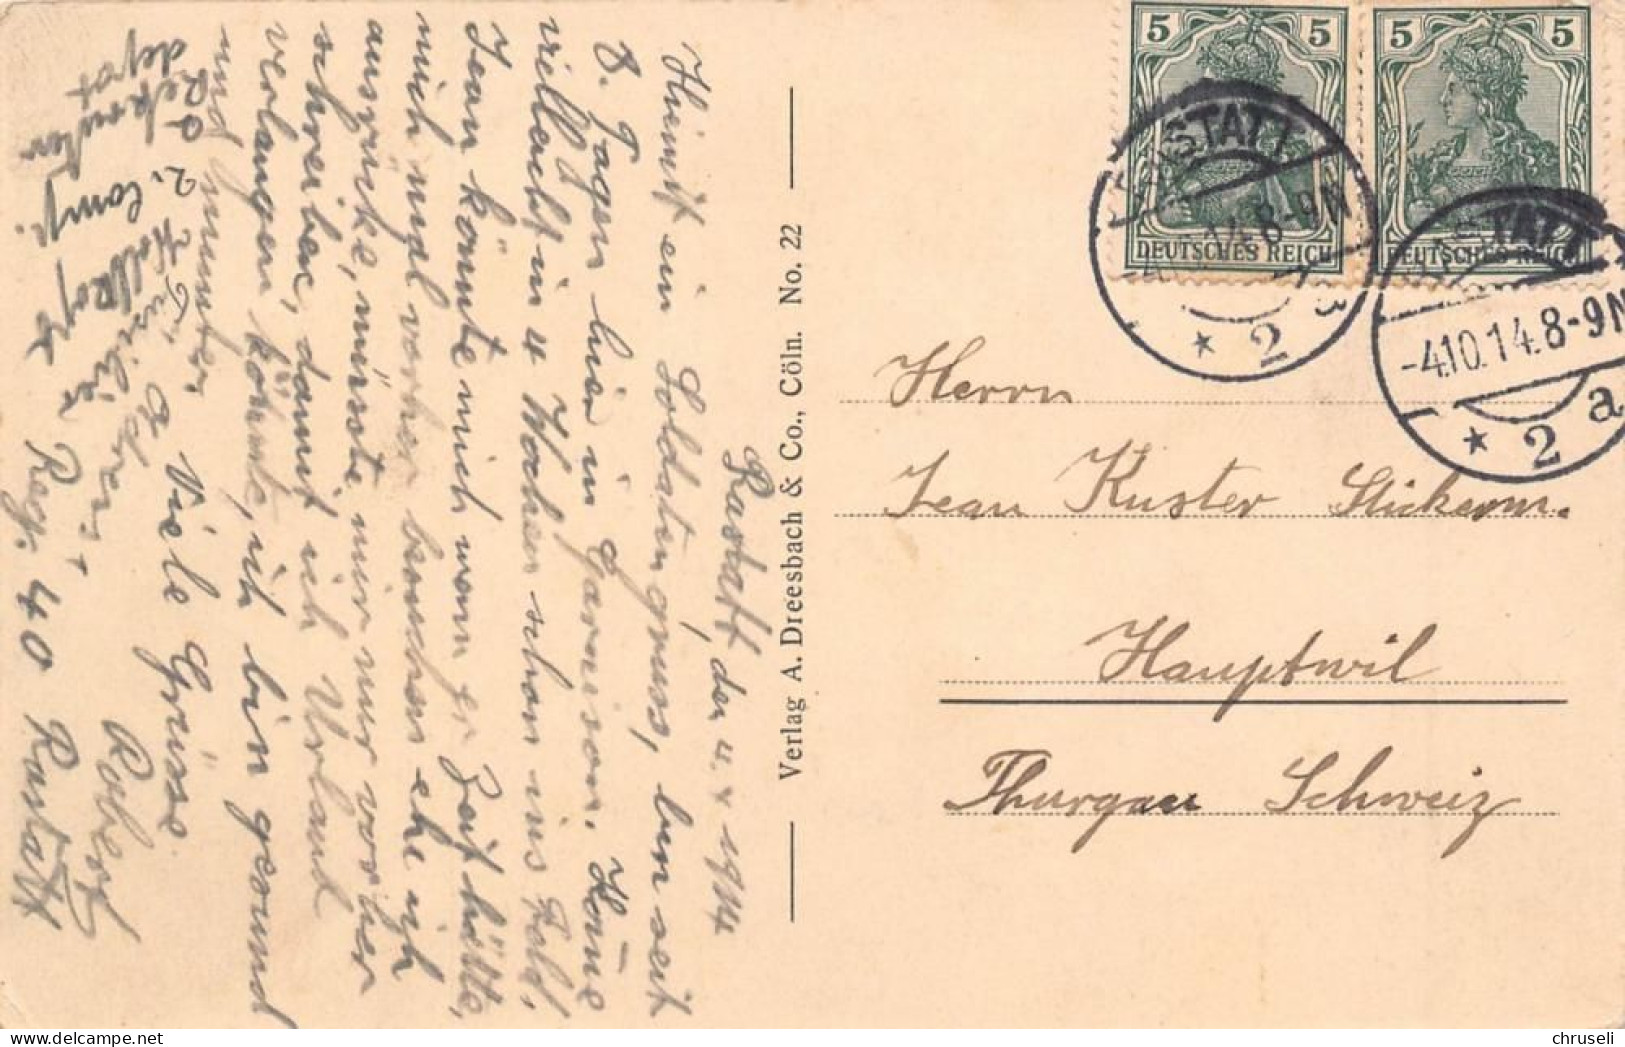 Rastatt, den 4. X 1914
Hiemit ein Soldatengruss, bin seit
8. Tagen hier in Garnison. Kome
viellеicht in 4 Wochen schon ins Feld,
Jean könnte mich wenn er Zeit hätte,
mich mal vorher besuchen ehe ich
ausrücke, müsste mir nur vorher
schreiben, damit ich Urlaub
verlangen könnte, ich bin gesund
und munter Viele Grüsse
Robert
Adress
Füsilier
Reg. 40 Rastatt
2. Comp.
Rekruten
depot
Verlag A. Dreesbach & Co., Cöln. No. 22
5 5
DEUTSCHES REICH
5 5
DEUTSCHES REICH
RASTATT
-4.10.14.8-9N
* 2 a
RASTATT
-4.10.14.8-9N
* 2 a
Herrn
Jean Kuster Stickerm.
Hauptwil
Thurgau Schweiz
www.delcampe.net
chruseli